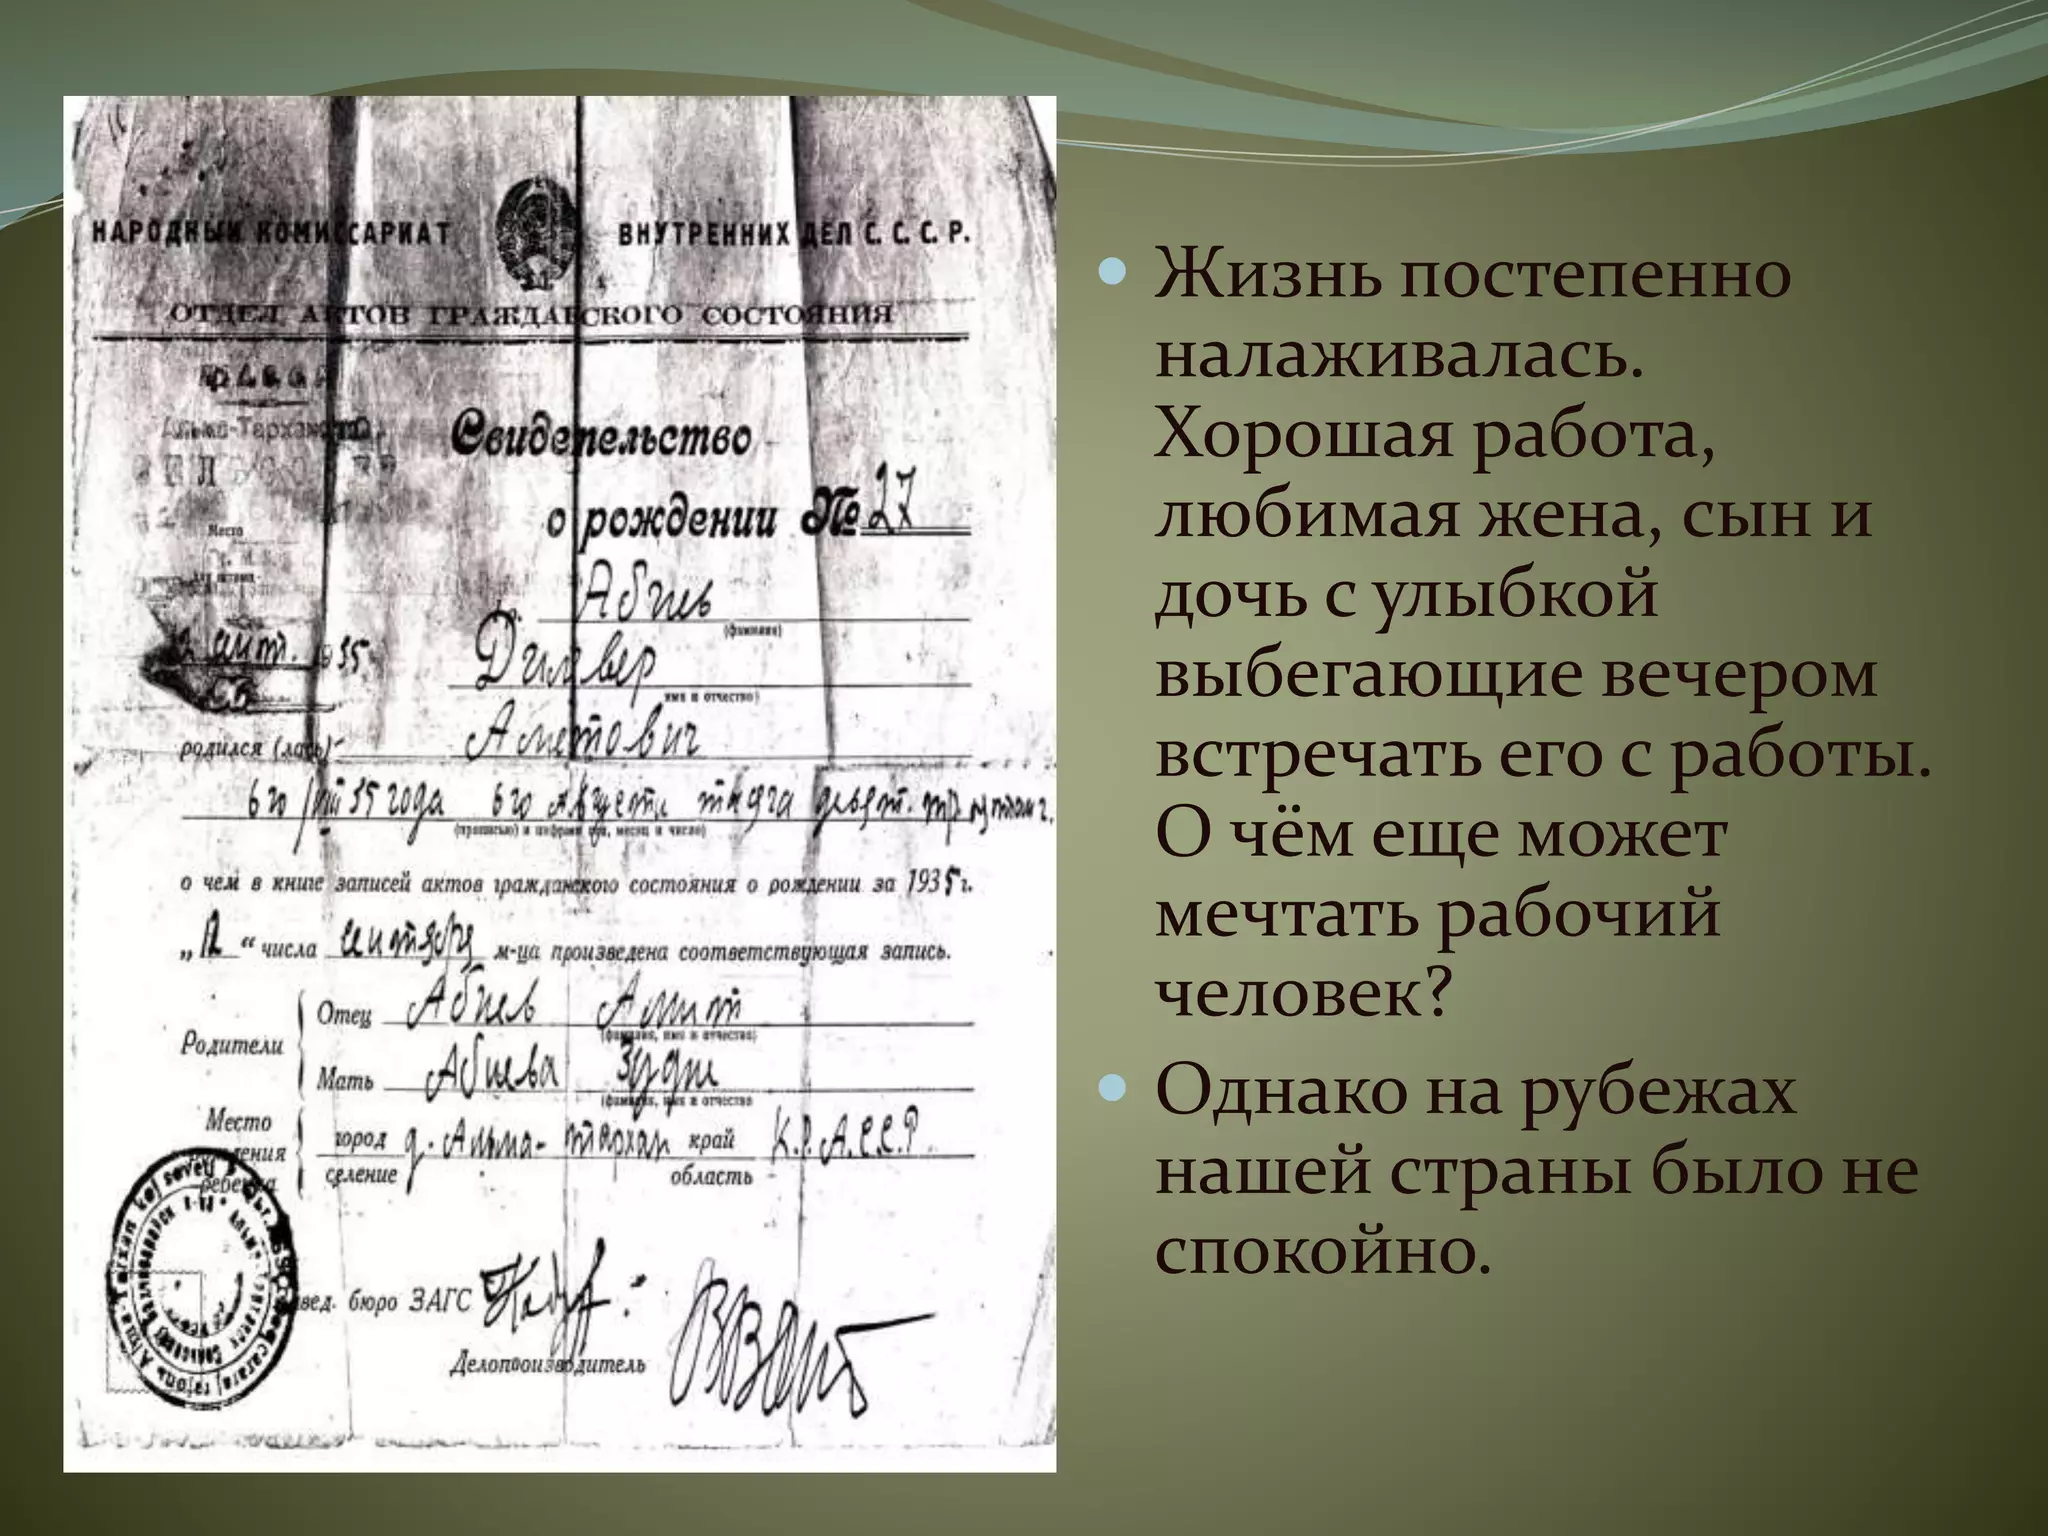 НАРОДНЫЙ КОМИССАРИАТ ВНУТРЕННИХ ДЕЛ С. С. С. Р.
ОТДЕЛ АКТОВ ГРАЖДАНСКОГО СОСТОЯНИЯ
Свидетельство
о рождении № 27
Место
Абиев
(фамилия)
Дилвер
имя и отчество)
Аметович
сент. 1935
родился (лась)
6го 35 года 6го Августа тысяча девят.
(прописью) и цифрами год, месяц и число)
о чем в книге записей актов гражданского состояния о рождении за 1935 г.
„12“ числа сентября м-ца произведена соответствующая запись.
Родители
Отец Абиев Амет
(фамилия, имя и отчество)
Мать Абиева
(фамилия, имя и отчество
Место
рождения
ребенка
город
селение
д. Альма-Тархан край
область
К.Р.А.С.С.Р.
Завед. бюро ЗАГС
Делопроизводитель
Жизнь постепенно
налаживалась.
Хорошая работа,
любимая жена, сын и
дочь с улыбкой
выбегающие вечером
встречать его с работы.
О чём еще может
мечтать рабочий
человек?
Однако на рубежах
нашей страны было не
спокойно.